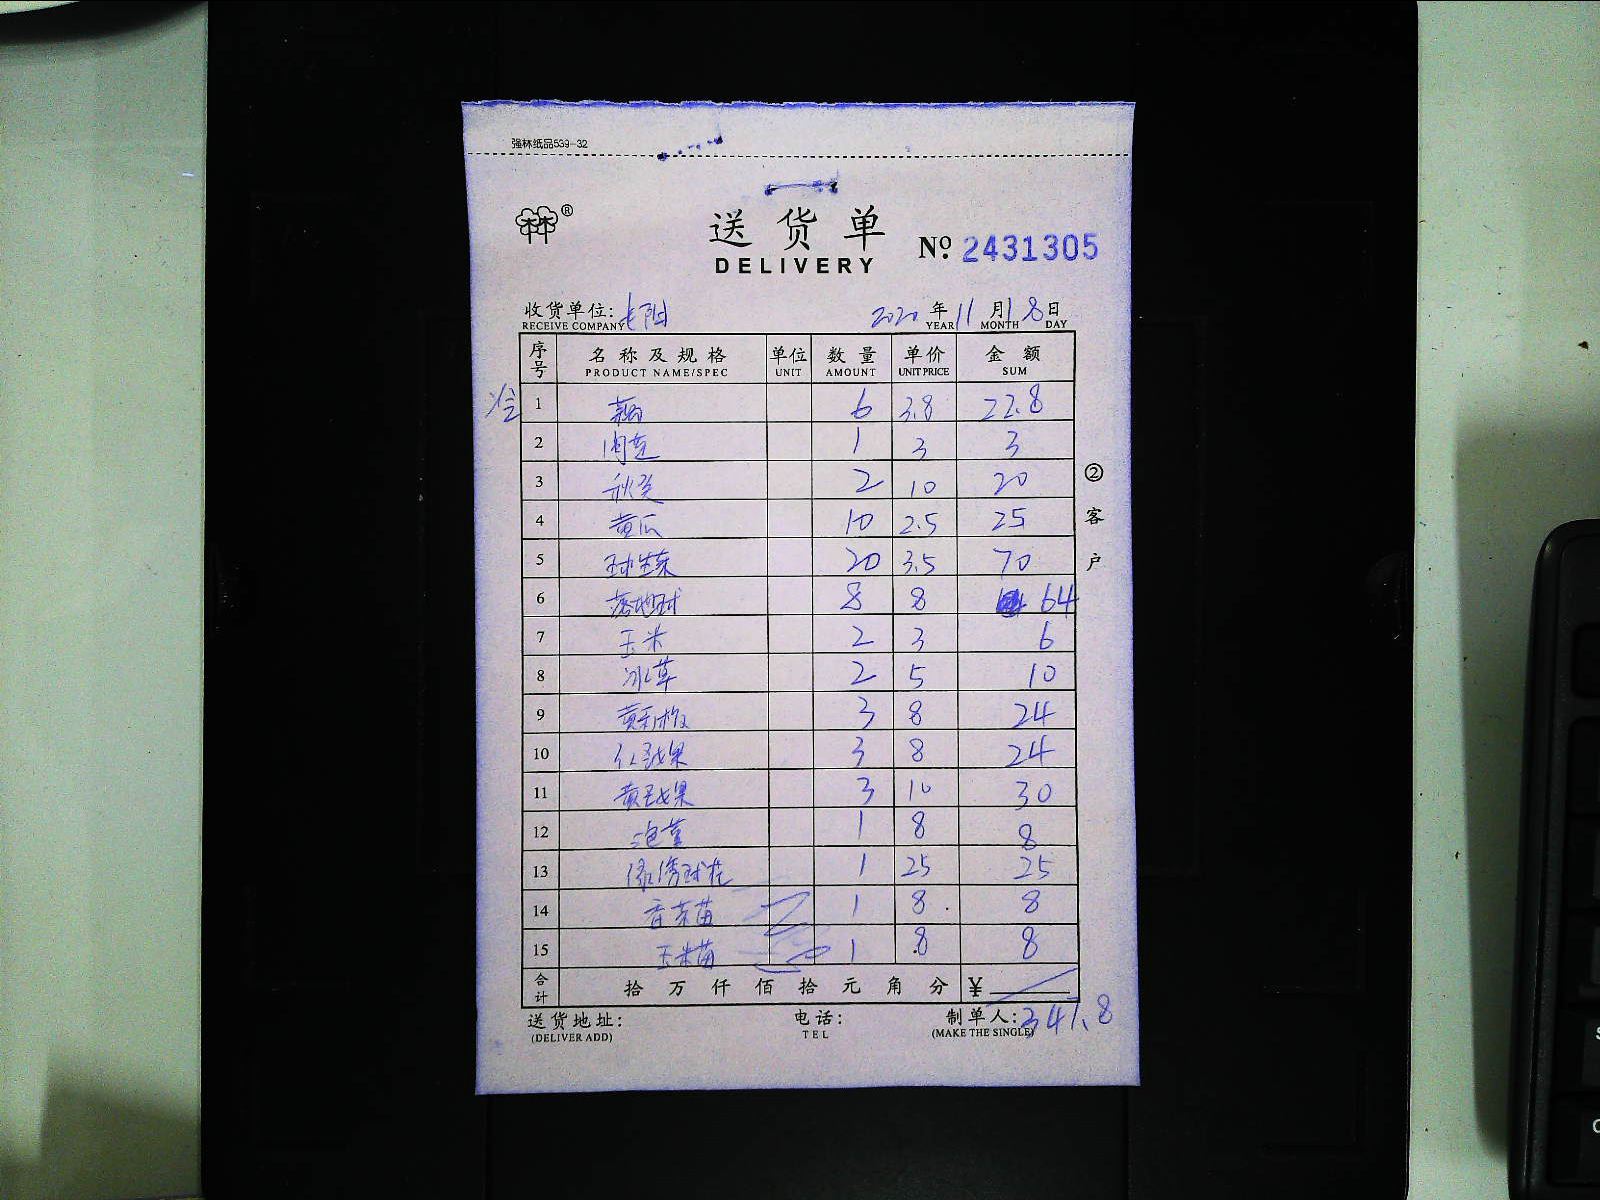 强林纸品539-32
®
送货单
No 2431305
DELIVERY
收货单位: 2020年11月18日
RECEIVE COMPANY YEAR MONTH DAY
序号 名称及规格 单位 数量 单价 金额
PRODUCT NAME/SPEC UNIT AMOUNT UNIT PRICE SUM
1 6 3.8 22.8
2 1 3 3
3 2 10 20
4 黄瓜 10 2.5 25
5 球生菜 20 3.5 70
6 8 8 64
7 玉米 2 3 6
8 冰草 2 5 10
9 3 8 24
10 3 8 24
11 3 10 30
12 1 8 8
13 绿绣球花 1 25 25
14 1 8 8
15 玉米苗 1 8 8
合计 拾万仟佰拾元角分 ¥
341.8
送货地址: 电话: 制单人:
(DELIVER ADD) TEL (MAKE THE SINGLE)
②客户